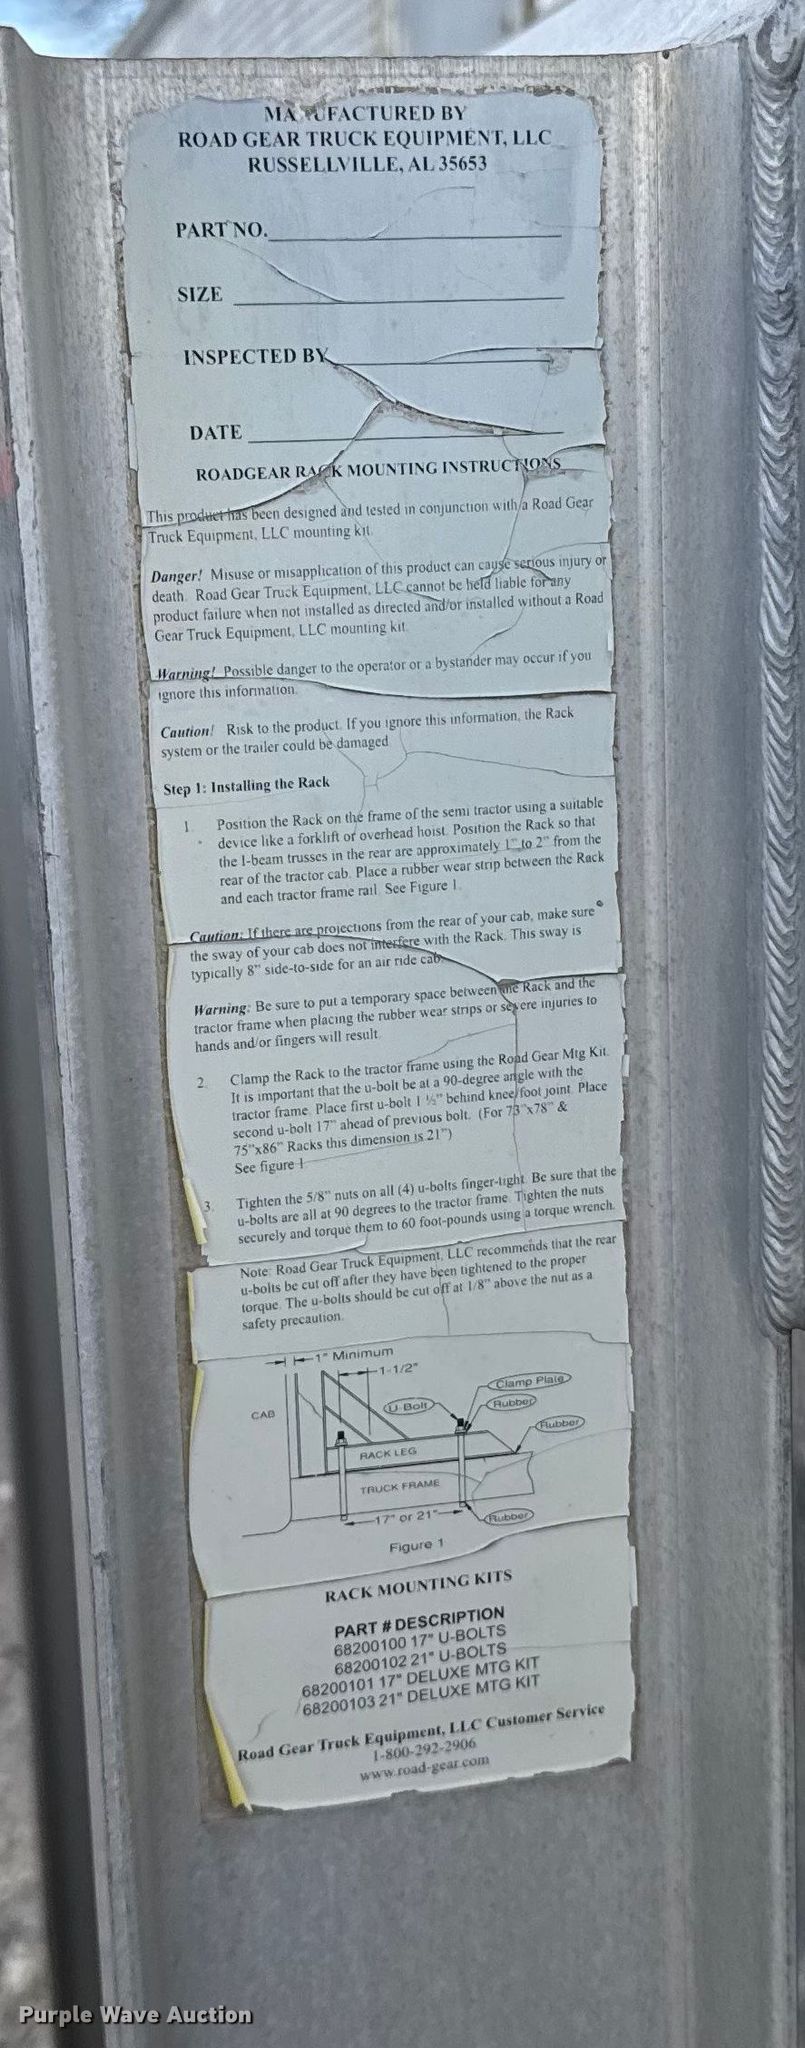 MANUFACTURED BY
ROAD GEAR TRUCK EQUIPMENT, LLC
RUSSELLVILLE, AL 35653
PART NO.
SIZE
INSPECTED BY
DATE
ROADGEAR RACK MOUNTING INSTRUCTIONS
This product has been designed and tested in conjunction with a Road Gear
Truck Equipment, LLC mounting kit.
Danger! Misuse or misapplication of this product can cause serious injury or
death. Road Gear Truck Equipment, LLC cannot be held liable for any
product failure when not installed as directed and/or installed without a Road
Gear Truck Equipment, LLC mounting kit.
Warning! Possible danger to the operator or a bystander may occur if you
ignore this information.
Caution! Risk to the product. If you ignore this information, the Rack
system or the trailer could be damaged
Step 1: Installing the Rack
1. Position the Rack on the frame of the semi tractor using a suitable
device like a forklift or overhead hoist. Position the Rack so that
the I-beam trusses in the rear are approximately 1" to 2" from the
rear of the tractor cab. Place a rubber wear strip between the Rack
and each tractor frame rail. See Figure 1.
Caution: If there are projections from the rear of your cab, make sure
the sway of your cab does not interfere with the Rack. This sway is
typically 8" side-to-side for an air ride cab.
Warning: Be sure to put a temporary space between the Rack and the
tractor frame when placing the rubber wear strips or severe injuries to
hands and/or fingers will result.
2. Clamp the Rack to the tractor frame using the Road Gear Mtg Kit.
It is important that the u-bolt be at a 90-degree angle with the
tractor frame. Place first u-bolt 1 ½" behind knee/foot joint. Place
second u-bolt 17" ahead of previous bolt. (For 73"x78" &
75"x86" Racks this dimension is 21")
See figure 1
3. Tighten the 5/8" nuts on all (4) u-bolts finger-tight. Be sure that the
u-bolts are all at 90 degrees to the tractor frame. Tighten the nuts
securely and torque them to 60 foot-pounds using a torque wrench.
Note: Road Gear Truck Equipment, LLC recommends that the rear
u-bolts be cut off after they have been tightened to the proper
torque. The u-bolts should be cut off at 1/8" above the nut as a
safety precaution.
1" Minimum
1-1/2"
Clamp Plate
U-Bolt
Rubber
CAB
Rubber
RACK LEG
TRUCK FRAME
17" or 21"
Rubber
Figure 1
RACK MOUNTING KITS
PART # DESCRIPTION
68200100 17" U-BOLTS
68200102 21" U-BOLTS
68200101 17" DELUXE MTG KIT
68200103 21" DELUXE MTG KIT
Road Gear Truck Equipment, LLC Customer Service
1-800-292-2906
www.road-gear.com
Purple Wave Auction